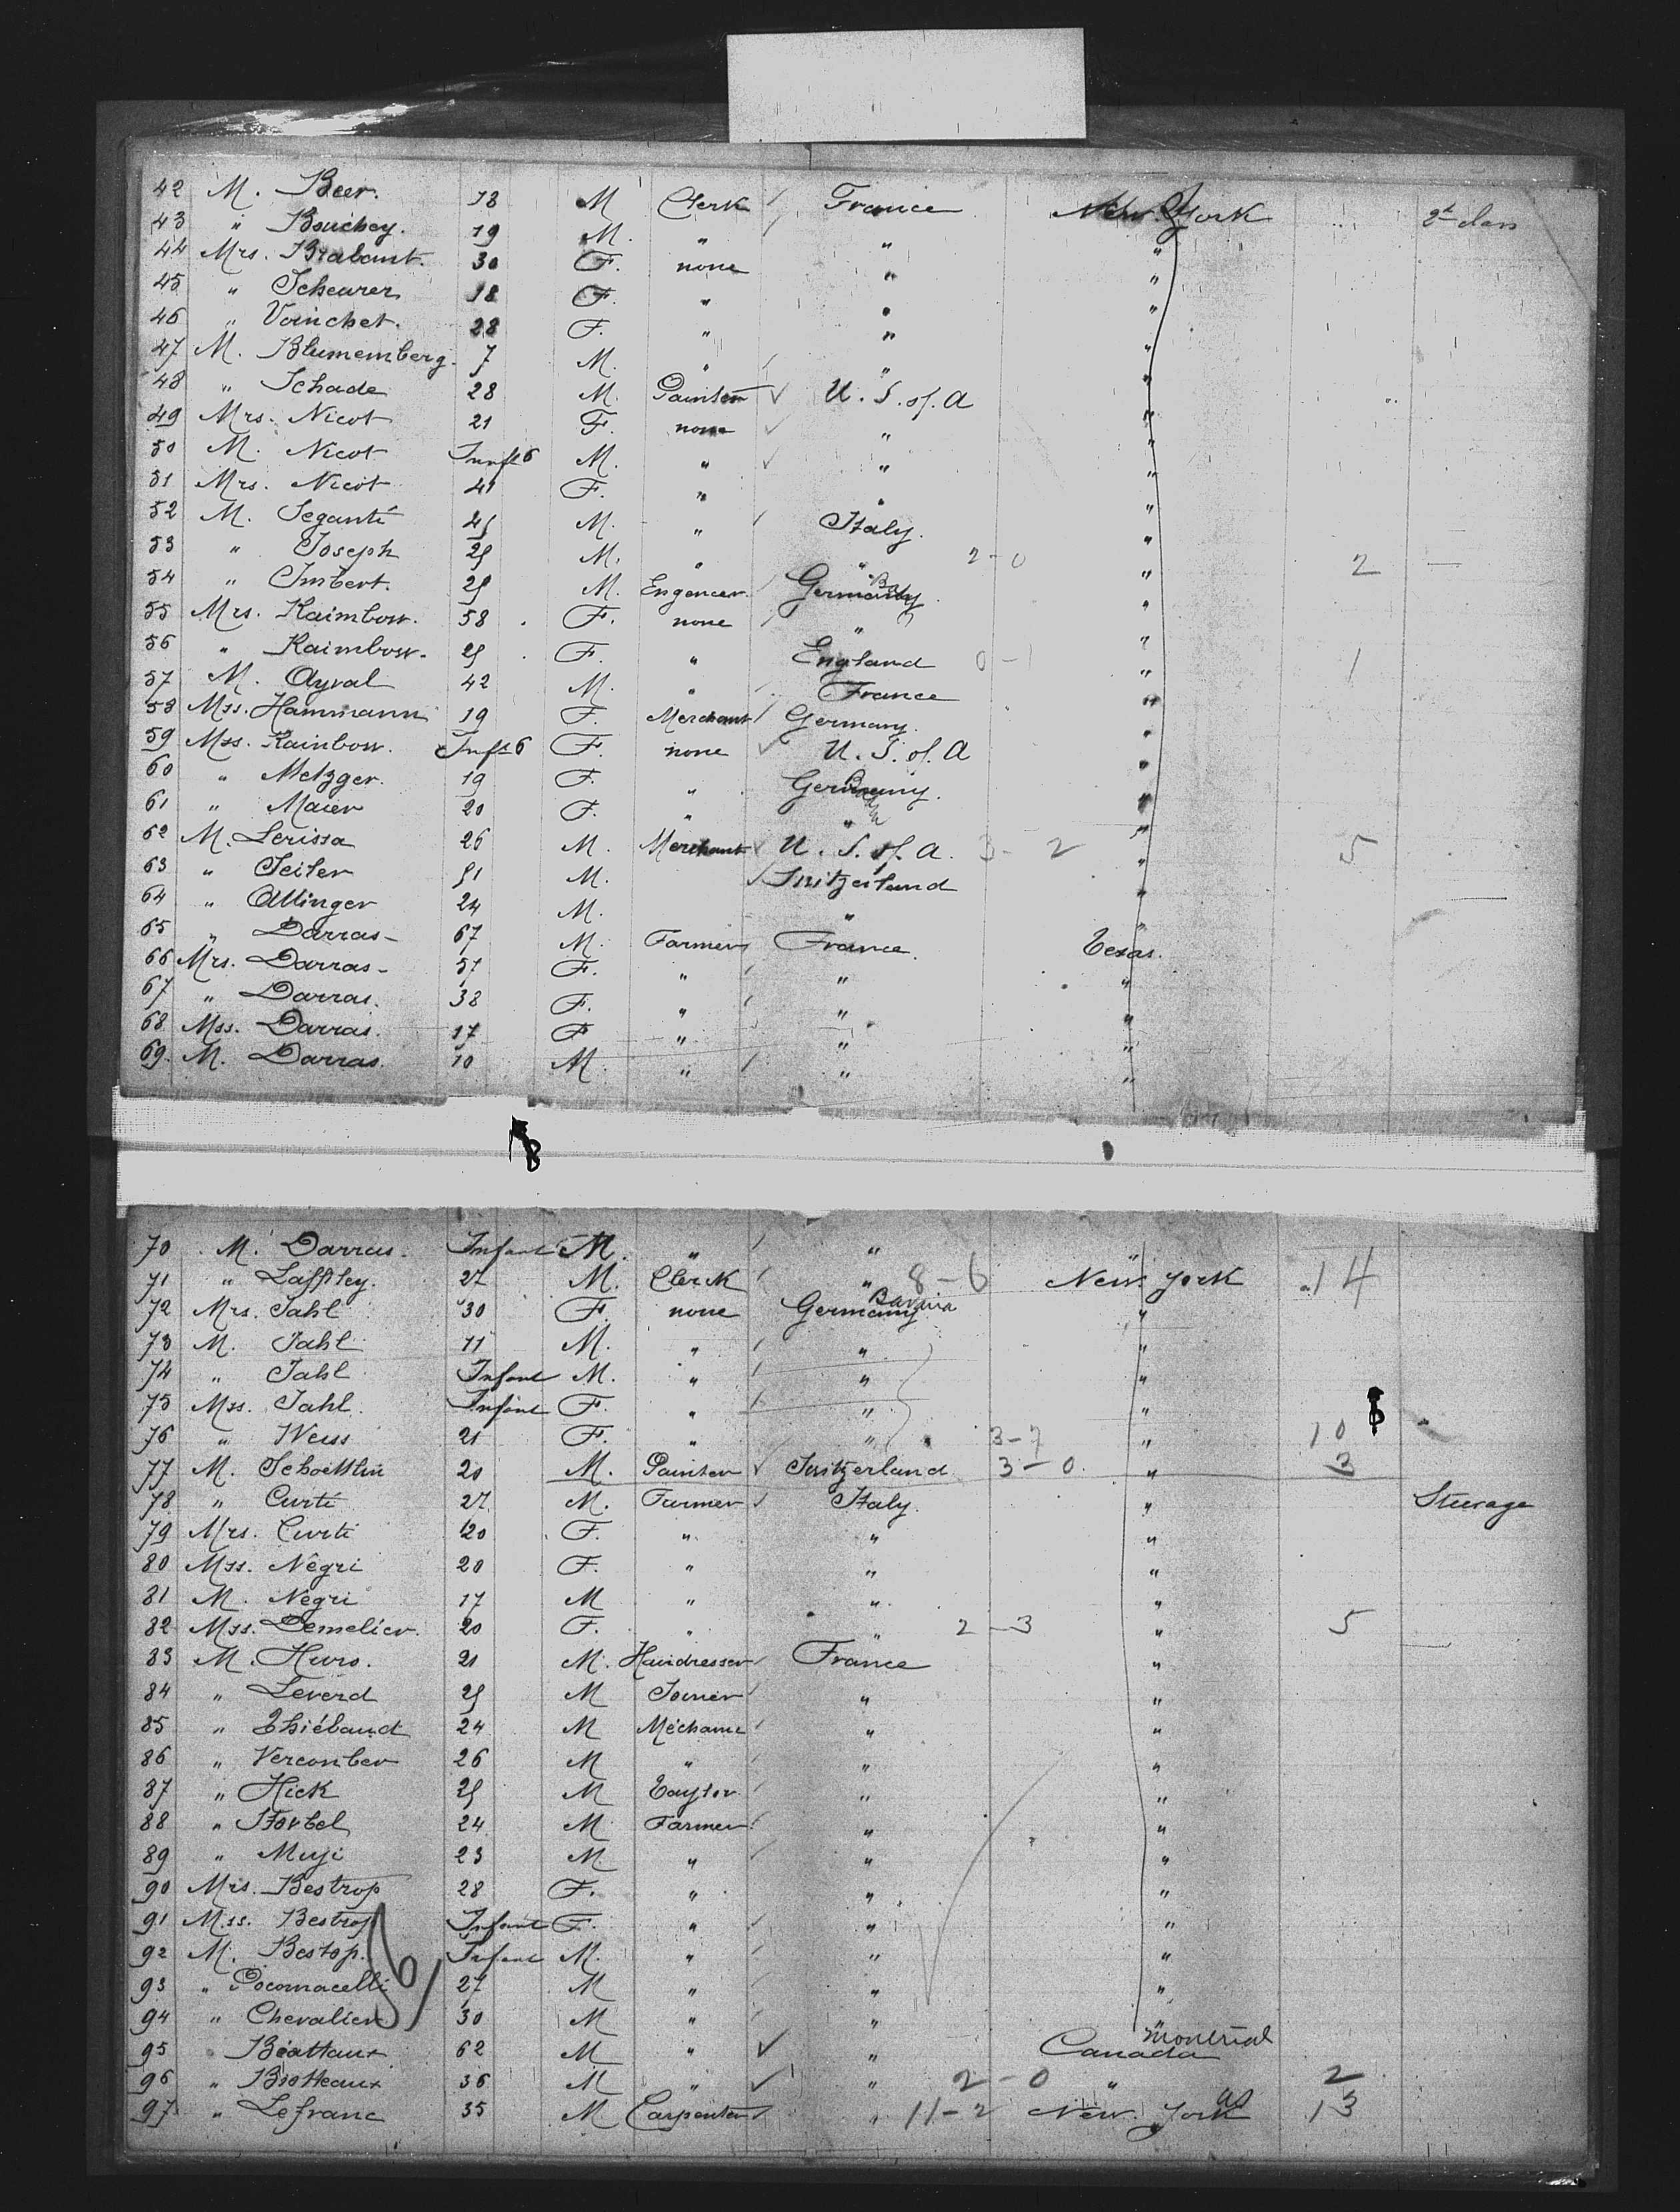 42 M. Beer. 18 M Clerk France New York 2d class
43 " Bouchey. 19 M. " " "
44 Mrs. Brabant. 30 F. none " "
45 " Scheurer 18 F. " " "
46 " Voinchet. 28 F. " " "
47 M. Blumemberg. 7 M. " " "
48 " Schade 28 M. Painter U. S. of. A "
49 Mrs. Nicot 21 F. none " "
50 M. Nicot 6 M. " " "
51 Mrs. Nicot 41 F. " " "
52 M. Seganti 45 M. " Italy. "
53 " Joseph 25 M. " " 2-0 " 2
54 " Imbert. 25 M. Engeneer Germany "
55 Mrs. Raimbow. 58 F. none " "
56 " Raimbow. 25 F. " England 0-1 " 1
57 M. Ayval 42 M. " France "
58 Mss. Hammann 19 F. Merchant Germany "
59 Mss. Rainbow. Inft 6 F. none U. S. of. A "
60 " Metzger. 19 F. " Germany. "
61 " Maier 20 F. " " "
62 M. Lerissa 26 M. Merchant U. S. of. A. 3-2 " 5
63 " Seiler 51 M. Switzerland "
64 " Ollinger 24 M. " "
65 " Darras 67 M. Farmer France. Texas.
66 Mrs. Darras 57 F. " " "
67 " Darras. 38 F. " " "
68 Mss. Darras. 17 F " " "
69. M. Darras. 10 M. " " "
70 M. Darras. Infant M. " " "
71 " Laffley. 27 M. Clerk " 8-6 New York 14
72 Mrs. Jahl 30 F. none Germany Bavaria "
73 M. Jahl 11 M. " " "
74 " Jahl Infant M. " " "
75 Mss. Jahl. Infant F. " " "
76 " Weiss 21 F. " " 3-7 " 10
77 M. Schoettlin 20 M. Painter Switzerland 3-0. " 3
78 " Curti 27 M. Farmer Italy. " Steerage
79 Mrs. Curti 20 F. " " "
80 Mss. Négri 20 F. " " "
81 M. Negri 17 M " " "
82 Mss. Demelier. 20 F. " " 2-3 " 5
83 M. Huro. 21 M. Hairdresser France "
84 " Leverd 25 M Joiner " "
85 " Thiébaud 24 M Méchanic " "
86 " 26 M " " "
87 " Hick 25 M Taylor " "
88 " 24 M Farmer " "
89 " 23 M " " "
90 Mrs. Bestrop 28 F. " " "
91 Mss. Bestrop Infant F. " " "
92 M. Bestop. Infant M. " " "
93 " Pocomacelli 27 M " " "
94 " Chevalier 30 M " " "
95 Béattaux 62 M " " Canada Montreal
96 " 36 M " " 2-0 " 2
97 " Lefranc 35 M Carpenter " 11-2 New York 13